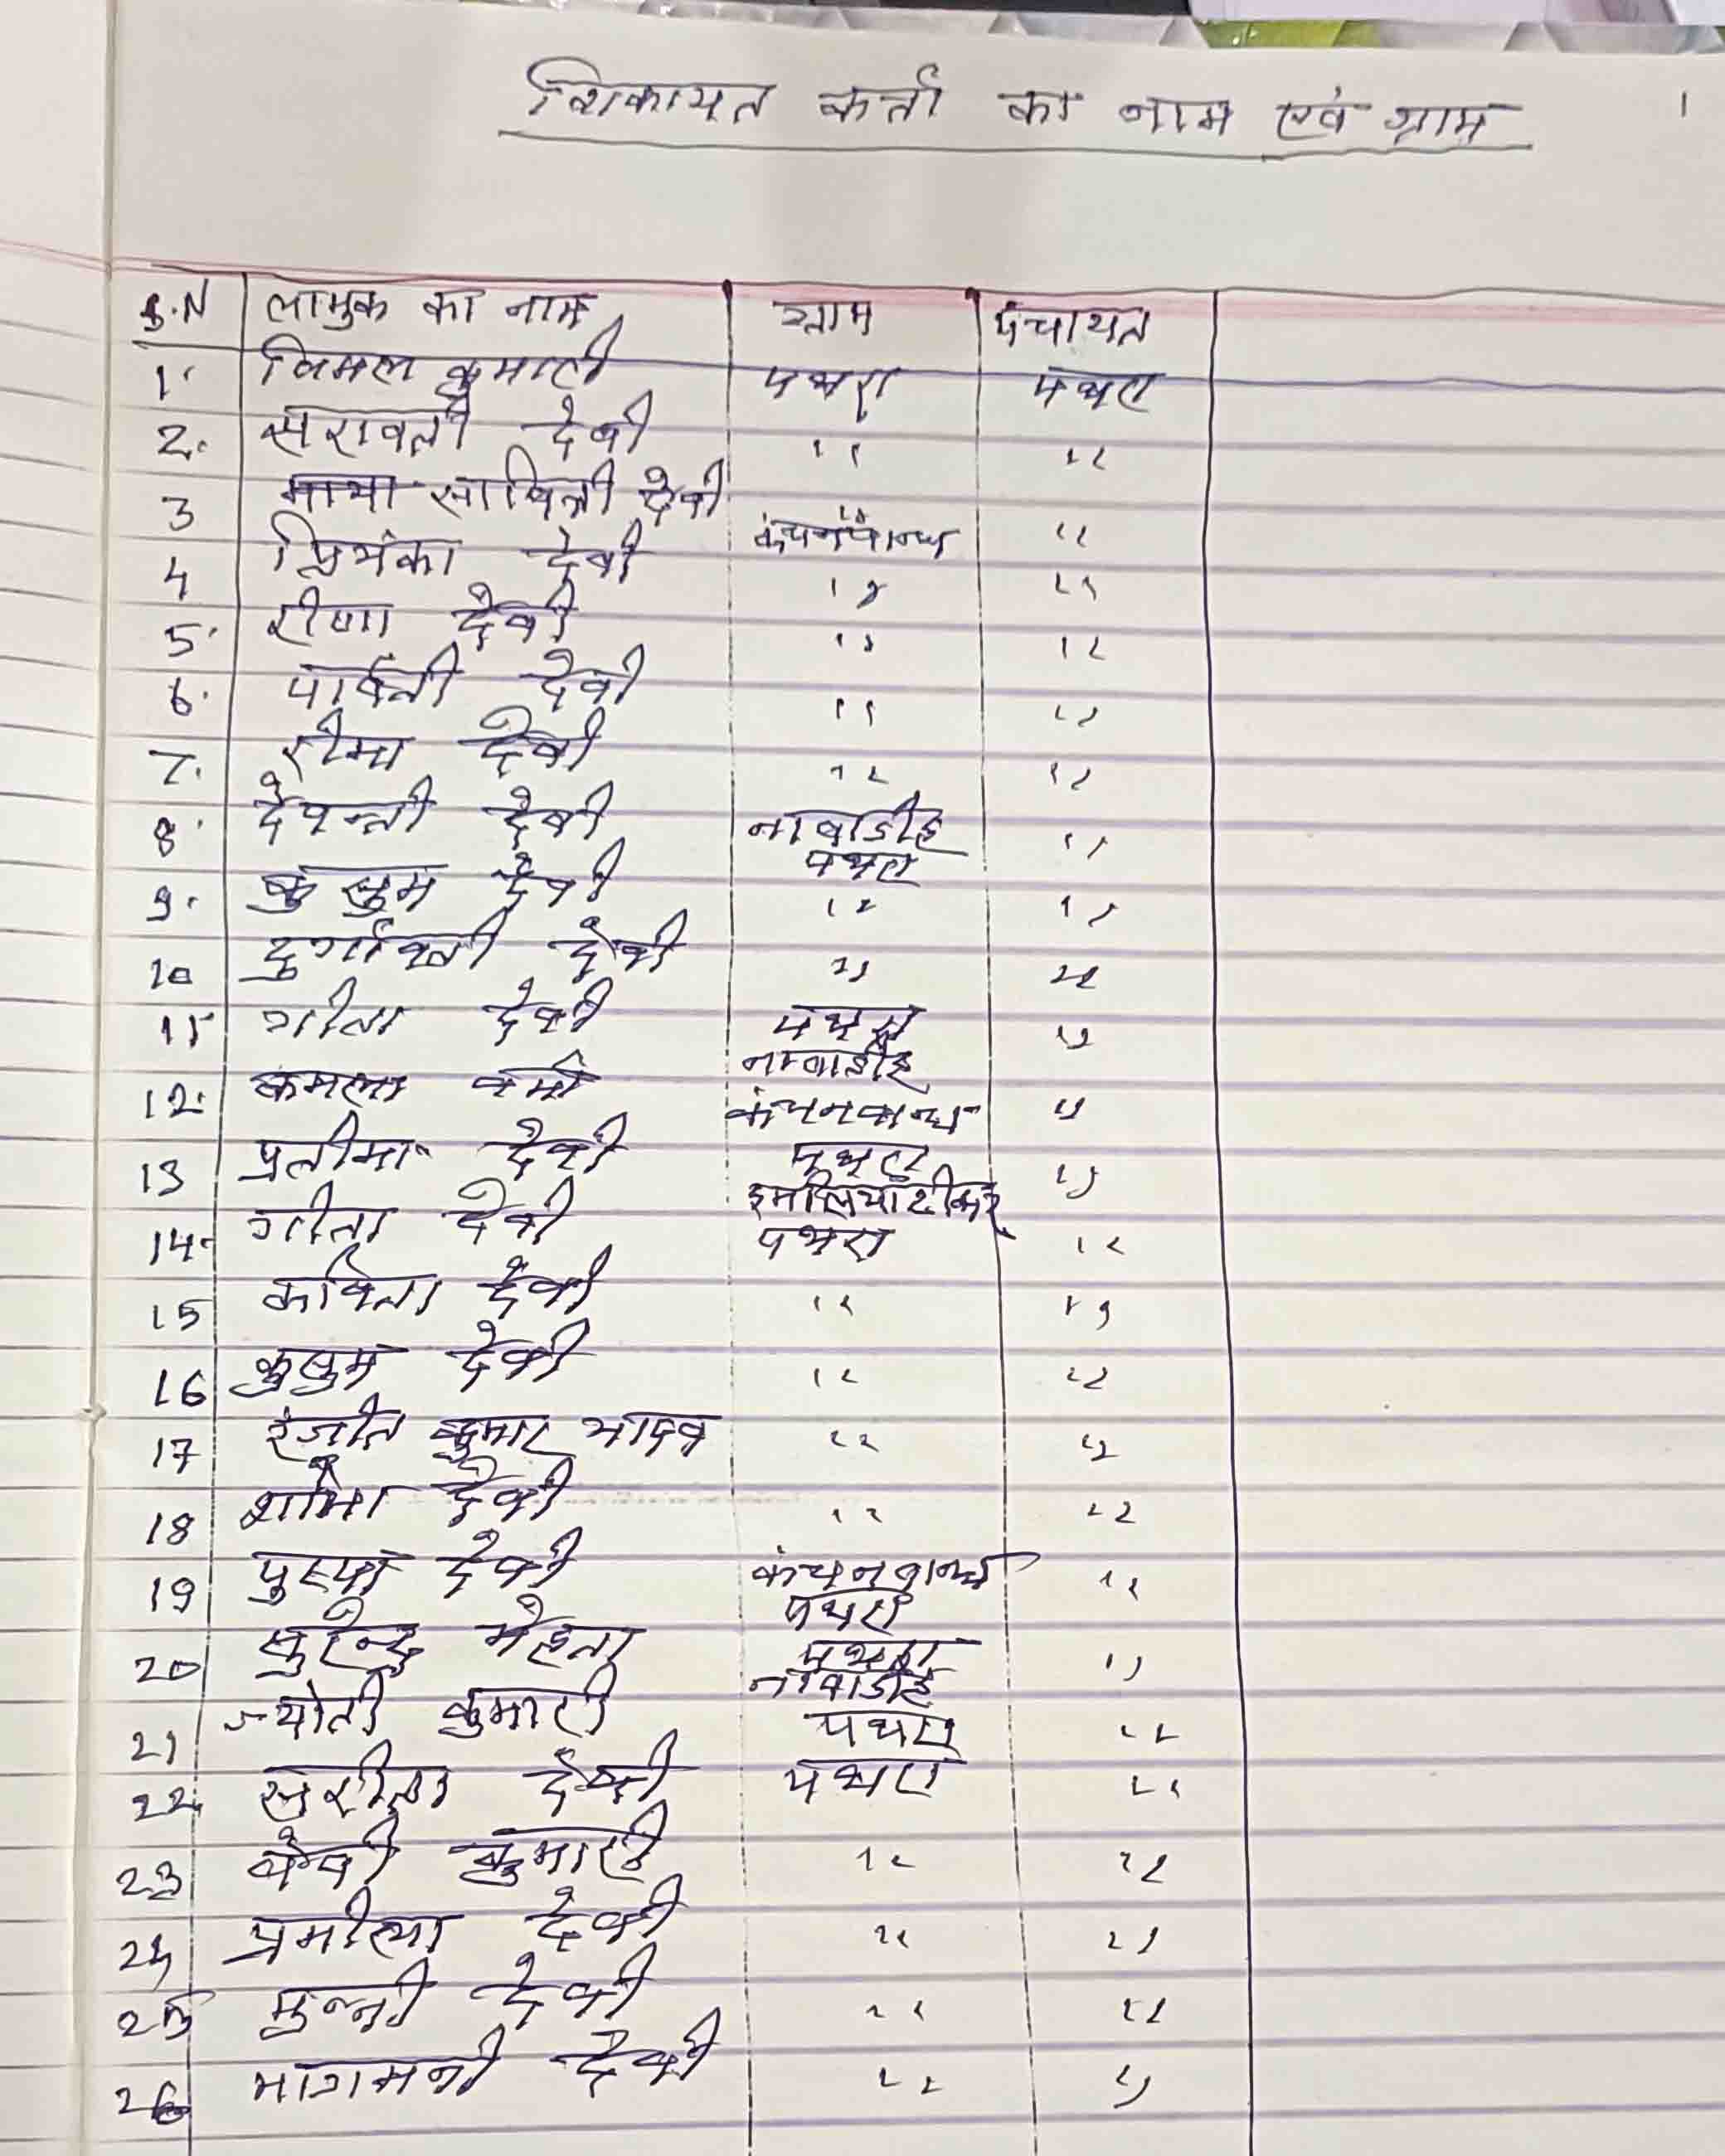 शिकायत कर्ता का नाम एवं ग्राम 1
S.N लाभुक का नाम ग्राम पंचायत
1. विमल कुमारी पथरा पथरा
2. सरावती देवी " "
3 माया सावित्री देवी " "
4 प्रियंका देवी कंचनबान्ध " "
5. रीणा देवी " "
6. पार्वती देवी " "
7. रीमा देवी " "
8. देवन्ती देवी नावाडीह पथरा "
9. कुसुम देवी " "
10 दुर्गावती देवी " "
11 गीता देवी पथरा नावाडीह "
12. कमला वर्मा कंचनबान्ध "
13 प्रतीमा देवी पथरा "
14. गीता देवी पथरा "
15 कविता देवी " "
16 कुसुम देवी " "
17 रंजीत कुमार यादव " "
18 शोभा देवी " "
19 पुष्पा देवी कंचनबान्ध पथरा "
20 सुरेन्द्र मेहता पथरा "
21 ज्योती कुमारी नावाडीह पथरा "
22 सरीता देवी पथरा "
23 बेबी कुमारी " "
24 प्रमील्या देवी " "
25 मुन्नी देवी " "
26 भागमनी देवी " "